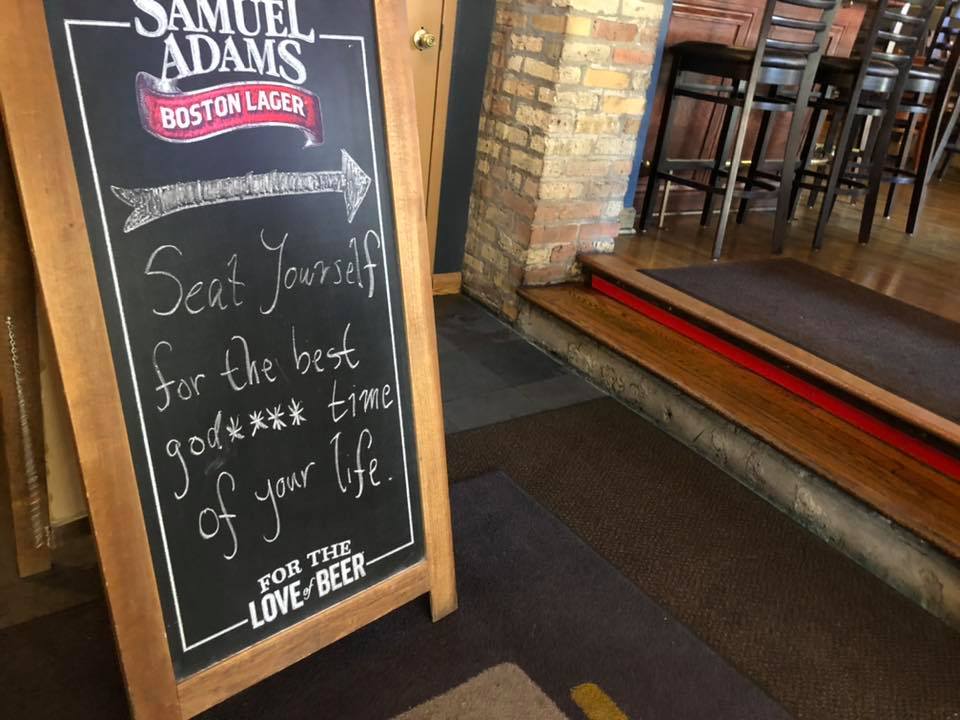 SAMUEL
ADAMS
BOSTON LAGER
Seat Yourself
for the best
god**** time
of your life.
FOR THE
LOVE of BEER